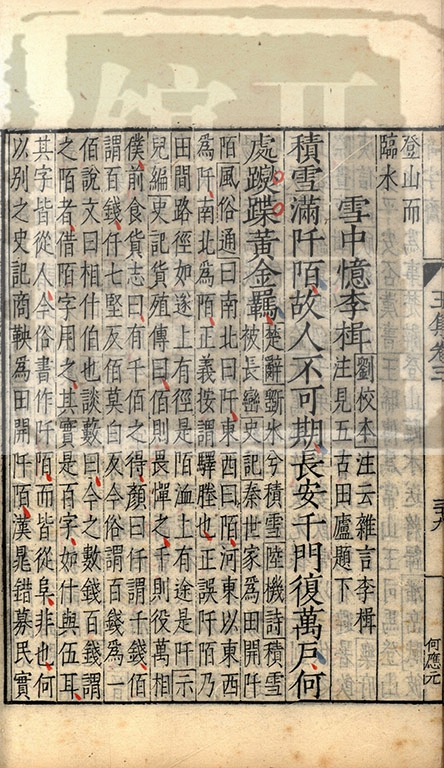 登山而
臨水
雪中憶李楫
劉校本注云雜言李楫
注見五古田廬題下
積雪滿阡陌故人不可期長安千門復萬戶何
處躞蹀黃金羈
楚辭斲水兮積雪陸機詩積雪
被長巒史記秦世家為田開阡
陌風俗通曰南北曰阡東西曰陌河東以東西
為阡南北為陌正義按謂驛塍也正誤阡陌乃
田間路徑如遂上有徑是陌洫上有途是阡示
兒編史記貨殖傳曰佰則畏憚之千則役萬相
僕前食貨志曰有千佰之得顏曰仟謂千錢佰
謂百錢仟七堅反佰莫白反今俗謂百錢為一
佰說文曰相什伯也談藪曰今之數錢百錢謂
之陌者借陌字用之其實是百字如什與伍耳
其字皆從人今俗書作阡陌而皆從阜非也何
以別之史記商鞅為田開阡陌漢晁錯募民實
何應元